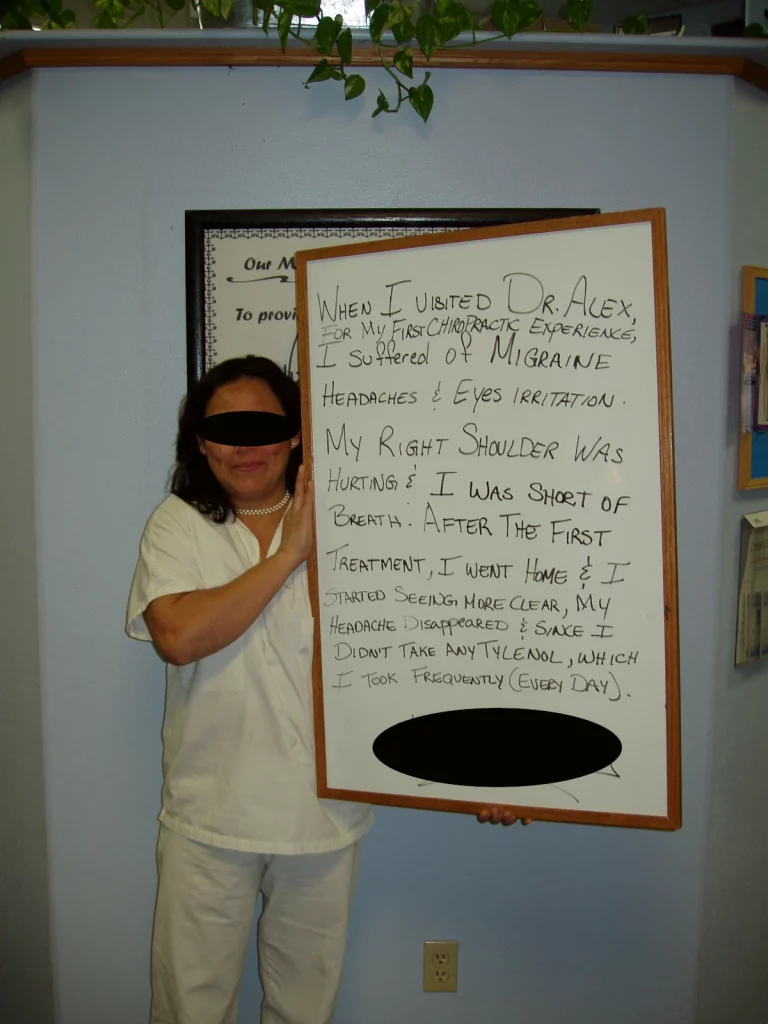 Our M
To provi
WHEN I VISITED DR. ALEX,
FOR MY FIRST CHIROPRACTIC EXPERIENCE,
I SUFFERED OF MIGRAINE
HEADACHES & EYES IRRITATION.
MY RIGHT SHOULDER WAS
HURTING & I WAS SHORT OF
BREATH. AFTER THE FIRST
TREATMENT, I WENT HOME & I
STARTED SEEING MORE CLEAR, MY
HEADACHE DISAPPEARED & SINCE I
DIDN'T TAKE ANY TYLENOL, WHICH
I TOOK FREQUENTLY (EVERY DAY).